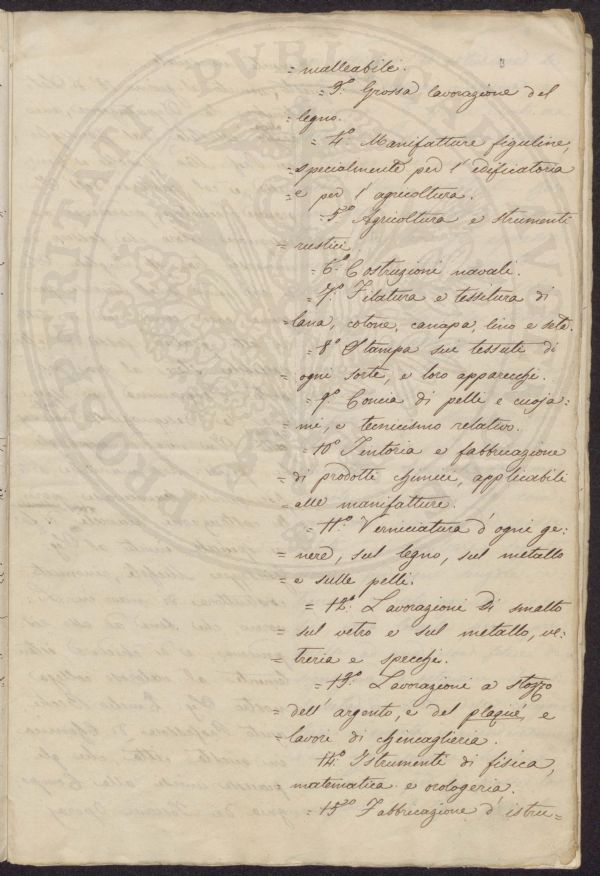 = malleabile.
= 3.º Grossa lavorazione del
= legno.
= 4.º Manifatture figuline,
= specialmente per l' edificatoria
= e per l' agricoltura.
= 5.º Agricoltura e strumenti
= rustici.
= 6.º Costruzioni navali.
= 7.º Filatura e tessitura di
= lana, cotone, canapa, lino e seta.
= 8.º Stampa sui tessuti di
= ogni sorte, e loro apparecchi.
= 9.º Concia di pelli e cuoja=
= mi, e tecnicismo relativo.
= 10.º Tintoria e fabbricazione
= di prodotti chimici, applicabili
= alle manifatture.
= 11.º Verniciatura d' ogni ge=
= nere, sul legno, sul metallo
= e sulle pelli.
= 12.º Lavorazioni di smalto
= sul vetro e sul metallo, ve=
= treria e specchj.
= 13.º Lavorazioni a stozzo
= dell' argento, e del plaqué, e
= lavori di chincaglieria.
14.º Istrumenti di fisica,
= matematica e orologeria.
= 15.º Fabbricazione d' istru=